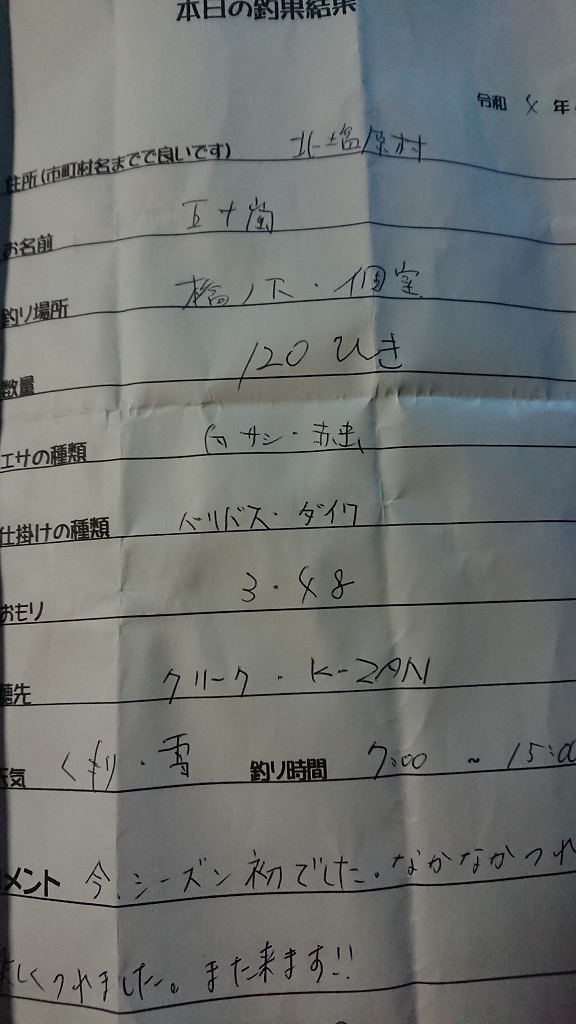 本日の釣果結果
令和 4 年
住所(市町村名までで良いです) 北塩原村
お名前 五十嵐
釣り場所 橋ノ下・個室
数量 120 ひき
エサの種類 白サシ・赤虫
仕掛けの種類 バリバス・ダイワ
おもり 3・48
穂先 クリーク・K-ZAN
天気 くもり・雪 釣り時間 7:00 ~ 15:0
メント 今シーズン初でした。なかなかつれ
楽しくつれました。また来ます!!